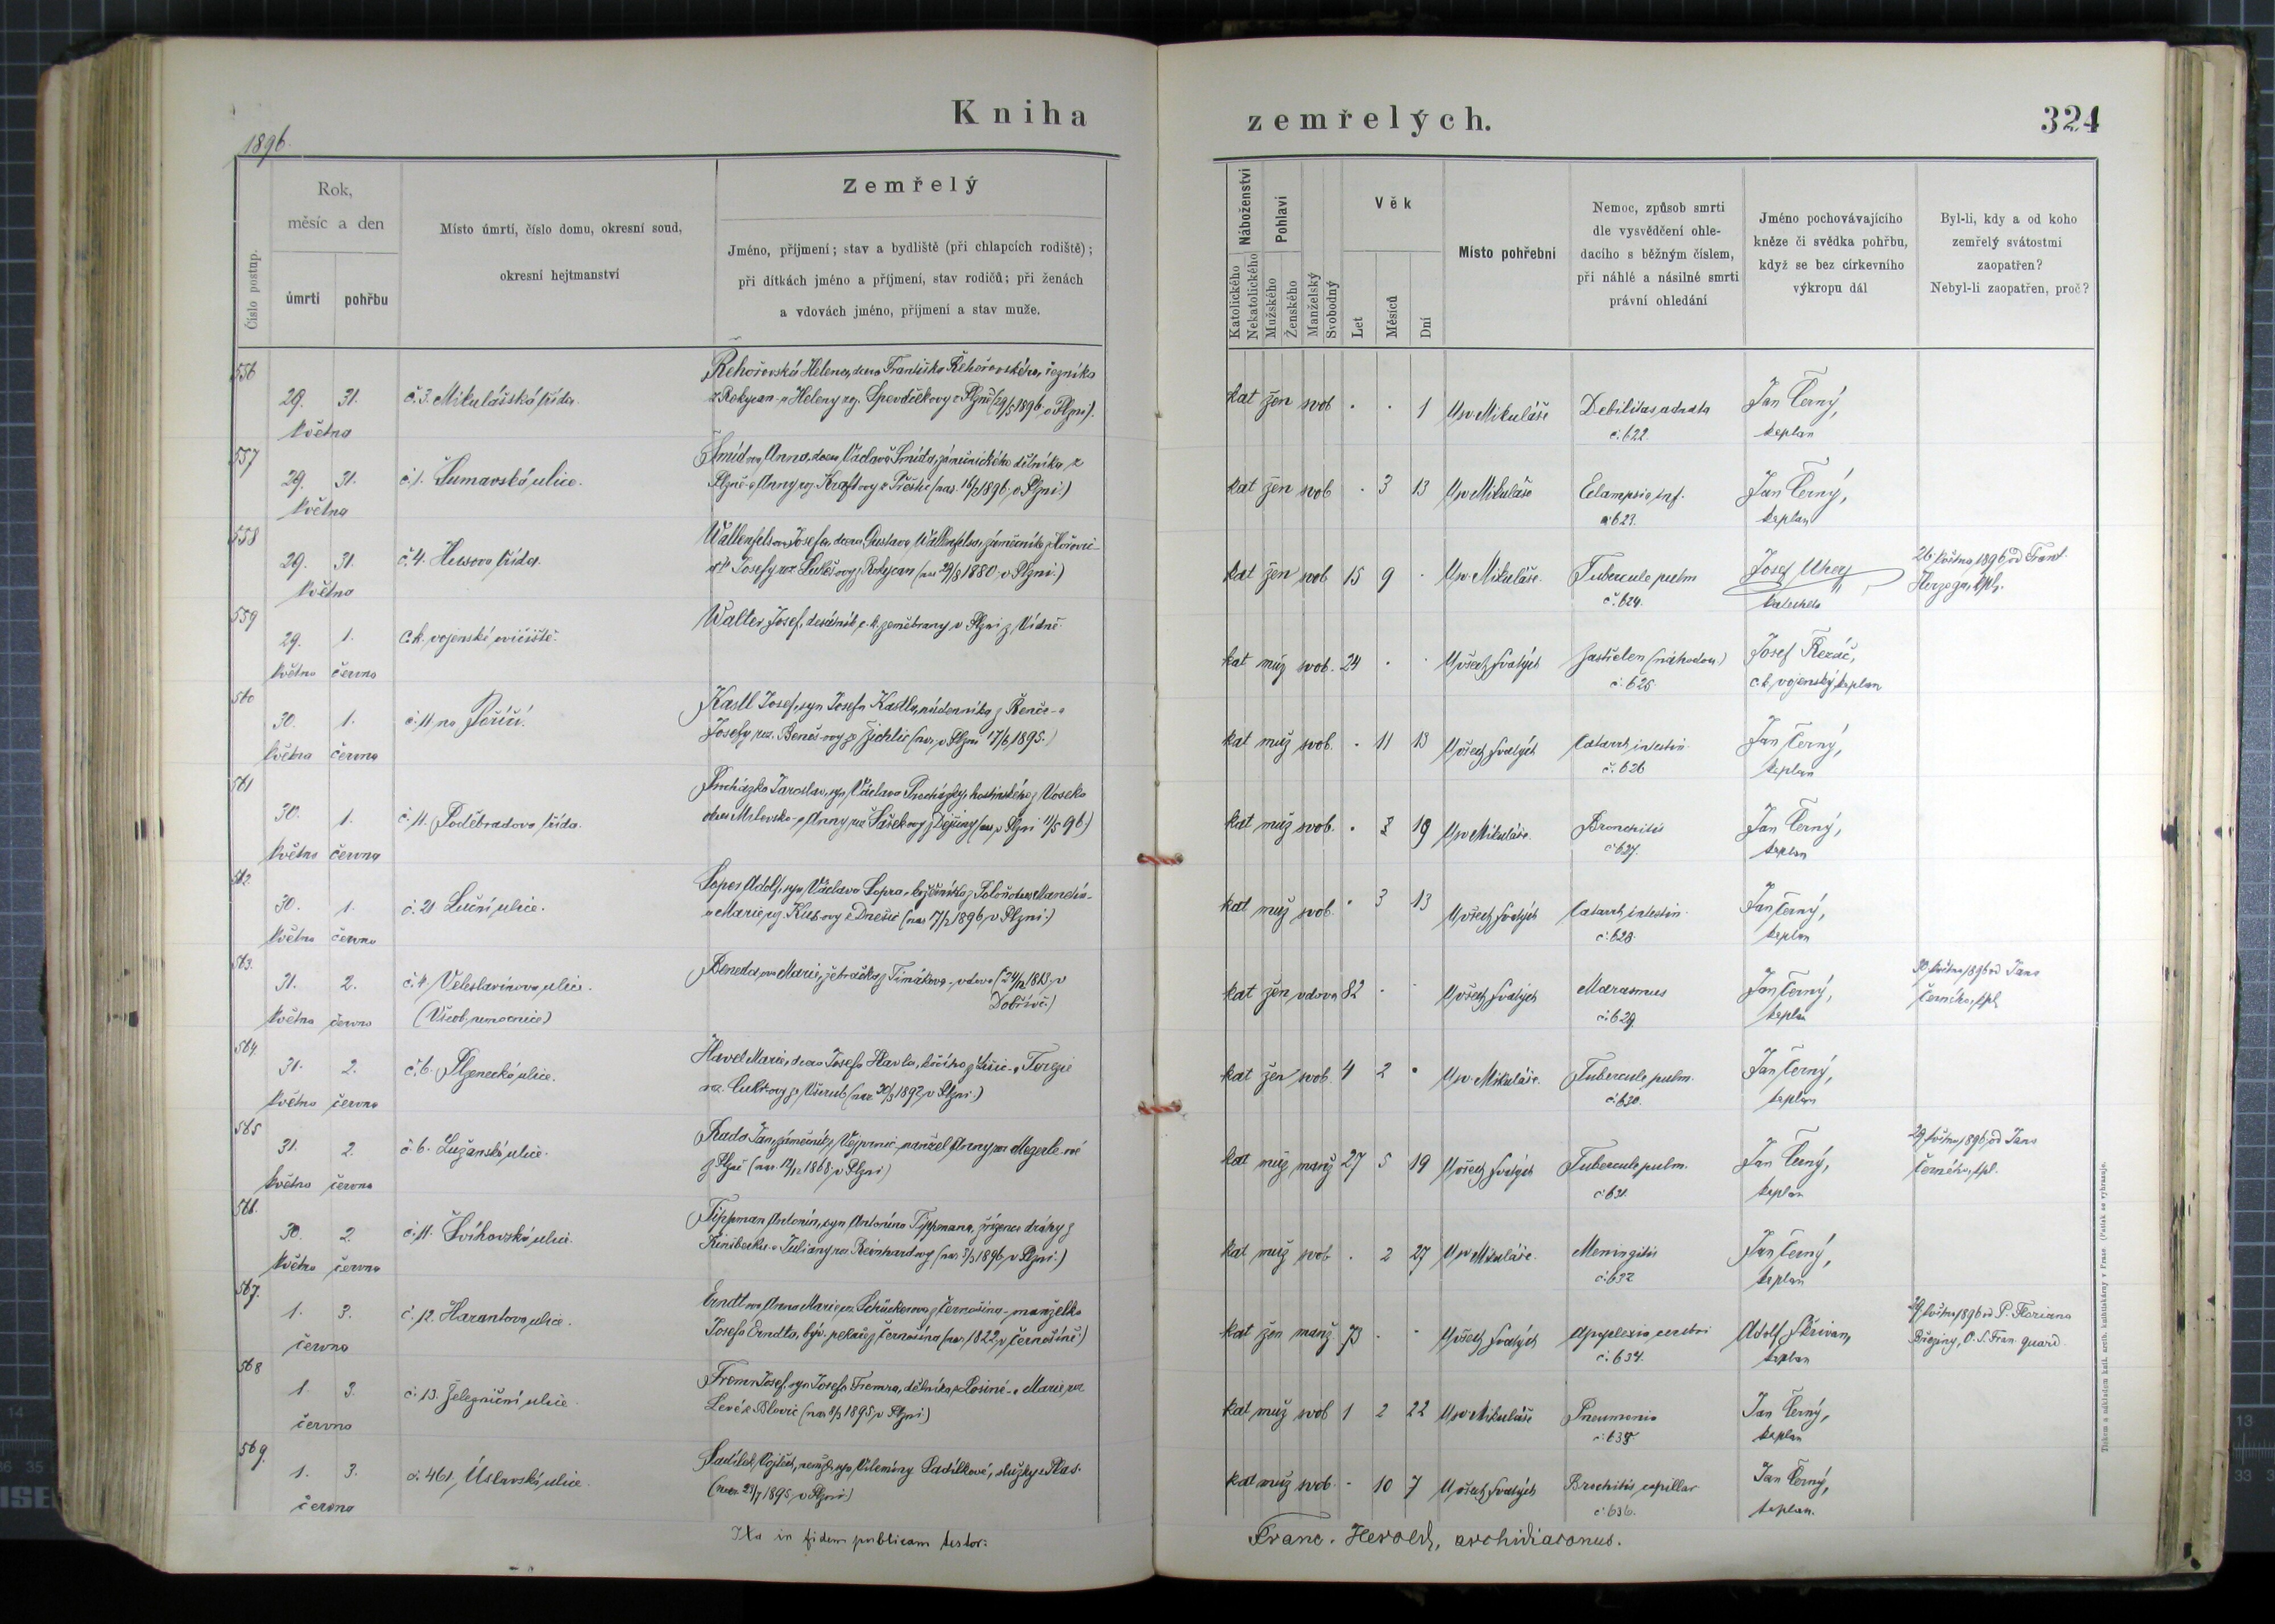 Kniha
zemřelých.
324
1896.
Číslo postup.
Rok,
měsíc a den
úmrtí
pohřbu
Místo úmrtí, číslo domu, okresní soud,
okresní hejtmanství
Zemřelý
Jméno, příjmení; stav a bydliště (při chlapcích rodiště);
při dítkách jméno a příjmení, stav rodičů; při ženách
a vdovách jméno, příjmení a stav muže.
Náboženství
Katolického
Nekatolického
Pohlaví
Mužského
Ženského
Manželský
Svobodný
Věk
Let
Měsíců
Dní
Místo pohřební
Nemoc, způsob smrti
dle vysvědčení ohle-
dacího s běžným číslem,
při náhlé a násilné smrti
právní ohledání
Jméno pochovávajícího
kněze či svědka pohřbu,
když se bez církevního
výkropu dál
Byl-li, kdy a od koho
zemřelý svátostmi
zaopatřen?
Nebyl-li zaopatřen, proč?
556
29. 31. č. 3. Mikulášská třída.
května
Řehořovská Helena, dcera Františka Řehořovského, řezníka
z Rokycan a Heleny roz. z Plzně (29/5 1896 v Plzni).
kat žen svob . . 1 U sv. Mikuláše Debilitas adnata Jan Černý,
č. 622. kaplan
557
29. 31. č. 1. Šumavská ulice.
května
Šmídova Anna, dcera Václava Šmída, zámečnického dělníka z
Plzně a Anny roz. Kraftovy z Přeštic (nar. 16/2 1896 v Plzni.)
kat žen svob . 3 13 U sv. Mikuláše Eclampsie inf. Jan Černý,
č. 623. kaplan
558
29. 31. č. 4. Husova třída.
května
Wallenfelsova Josefa, dcera Gustava Wallenfelsa, zámečníka z Hořovic
a Josefy roz. Lukešovy z Rokycan (nar. 29/8 1880 v Plzni.)
kat žen svob 15 9 . U sv. Mikuláše. Tubercule pulm Josef Uherý
č. 624. katecheta
26. května 1896 od Frant.
Herzoga, kpl.
559
29. 1. C. k. vojenské cvičiště.
května června
Walter Josef, desátník c. k. zeměbrany v Plzni z Vídně.
kat muž svob. 24 . . U všech svatých Zastřelen (náhodou) Josef Řezáč,
č. 625 c. k. vojenský kaplan
560
30. 1. č. 11 na Poříčí.
května června
Kastl Josef, syn Josefa Kastla, nádenníka z Řenče a
Josefy roz. Benešovy ze Žichlic (nar. v Plzni 17/6 1895.)
kat muž svob. . 11 13 U všech svatých Catarrh intestin. Jan Černý,
č. 626 kaplan
561
30. 1. č. 11. Poděbradova třída.
května června
Procházka Jaroslav, syn Václava Procházky, hostinského z Voseka
okres Milevsko a Anny roz. Šaškovy z Dejšiny (nar. v Plzni 11/5 96)
kat muž svob. . 3 19 U sv. Mikuláše. Bronchitis Jan Černý,
č. 627. kaplan
562.
30. 1. č. 21 Luční ulice.
května června
Adolf, syn Václava
a Marie roz. Kubovy z Dnešic (nar. 17/2 1896 v Plzni.)
kat muž svob. . 3 13 U všech svatých Catarrh intestin. Jan Černý,
č. 628. kaplan
563.
31. 2. č. 4. Veleslavínova ulice.
května června (Všeob. nemocnice)
Marie, žebračka z Timákova, vdova (* 24/12 1813 v
Dobřívě.)
kat žen vdova 82 . . U všech svatých Marasmus Jan Černý,
č. 629. kaplan
30. května 1896 od Jana
Černého, kpl.
564.
31. 2. č. 6. Plzenecká ulice.
května června
Havel Marie, dcera Josefa Havla, kočího z
roz. ze Všerub (nar. 30/3 1892 v Plzni.)
kat žen svob. 4 2 . U sv. Mikuláše. Tubercule pulm. Jan Černý,
č. 630. kaplan
565
31. 2. č. 6. Lužanská ulice.
května června
Rada Jan, zámečník z Vejprnic, manžel Anny roz. Megerle-ové
z Plzně (nar. 12/12 1868 v Plzni)
kat muž manž 27 5 19 U všech svatých Tubercule pulm. Jan Černý,
č. 631. kaplan
29. května 1896 od Jana
Černého, kpl.
566.
30. 2. č. 11. Švihovská ulice.
května června
Tippman Antonín, syn Antonína Tippmana, zřízence dráhy z
a Juliany roz. Reinhardovy (nar. 3/3 1896 v Plzni.)
kat muž svob. . 2 27 U sv. Mikuláše. Meningitis Jan Černý,
č. 632 kaplan
567.
1. 3. č. 12. Harantova ulice.
června
Erndtova Anna Marie roz. Schückerova z Černošína, manželka
Josefa Erndta, býv. pekaře z Černošína (nar. 1822 v Černošíně.)
kat žen manž 73 . . U všech svatých Apoplexia cerebri Adolf Skřivan,
č. 634. kaplan
29. května 1896 od P. Floriana
Březiny, O. S. Fran. quard.
568
1. 3. č. 13. Železniční ulice.
června
Fremr Josef, syn Josefa Fremra, dělníka z Losiné a Marie roz.
z Blovic (nar. 8/3 1895 v Plzni.)
kat muž svob 1 2 22 U sv. Mikuláše Pneumonia Jan Černý,
č. 635. kaplan
569.
1. 3. č. 461. Úslavská ulice.
června
Sadílek Vojtěch, nemanž. syn Vilemíny Sadílkové, služky z Plas.
(nar. 23/7 1895 v Plzni)
kat muž svob. - 10 7 U všech svatých Brochitis capillar Jan Černý,
č. 636. kaplan.
Ita in fidem publicam testor:
Franc. Herold, archidiaconus.
Tiskem a nákladem kath. arcib. knihtiskárny v Praze. (Patisk se vyhrazuje.